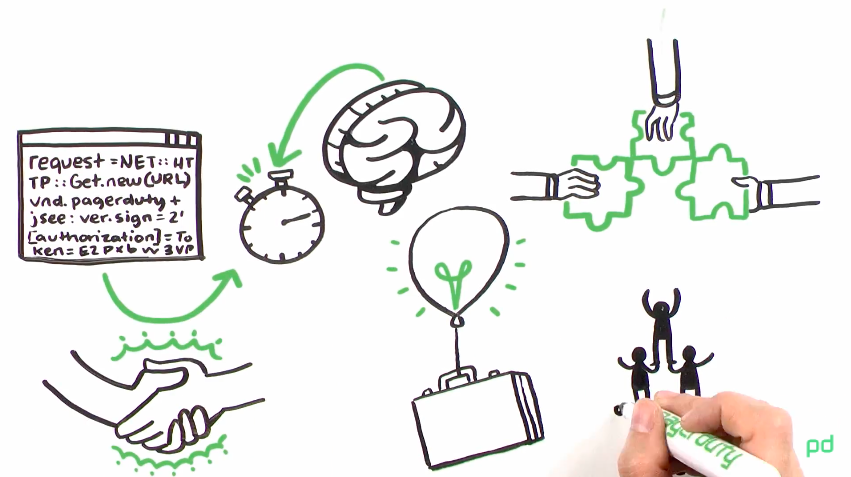 request =NET::HT
TP::Get.new(URL)
vnd.pagerduty+
jsee: ver.sign=2'
[authorization]=To
ken=E2PXbW3VP
pagerduty
pd